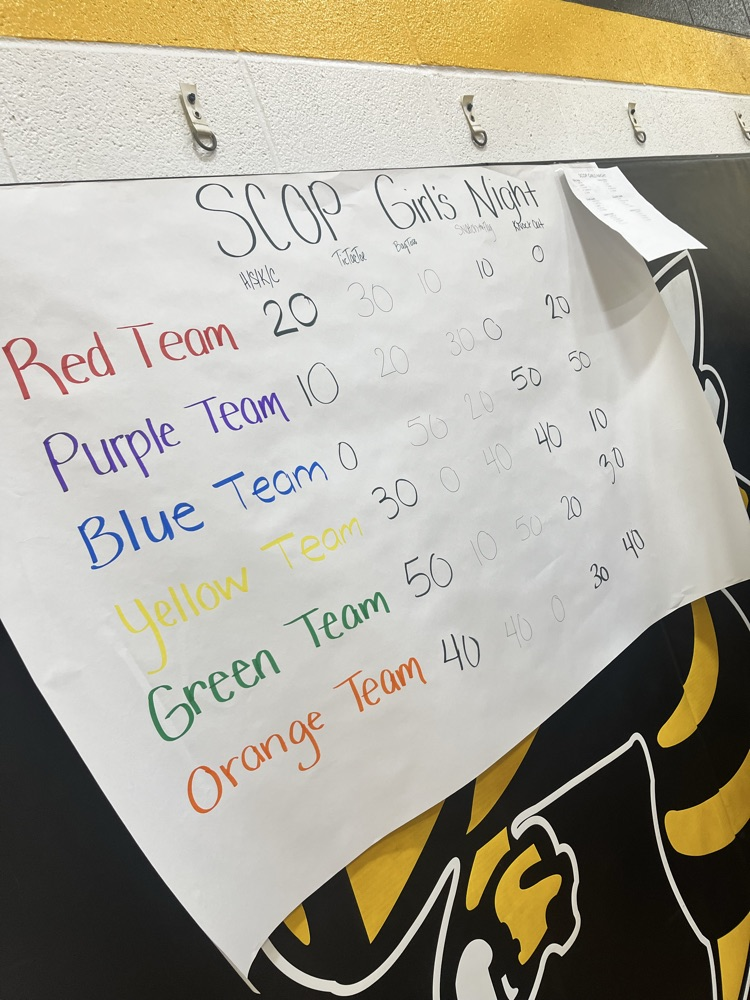 SCOP Girl's Night
H/S/K/C TicTacToe Knock Out
Red Team 20 30 10 10 0
Purple Team 10 20 30 0 20
Blue Team 0 50 20 50 50
Yellow Team 30 0 40 40 10
Green Team 50 10 50 20 30
Orange Team 40 40 0 30 40